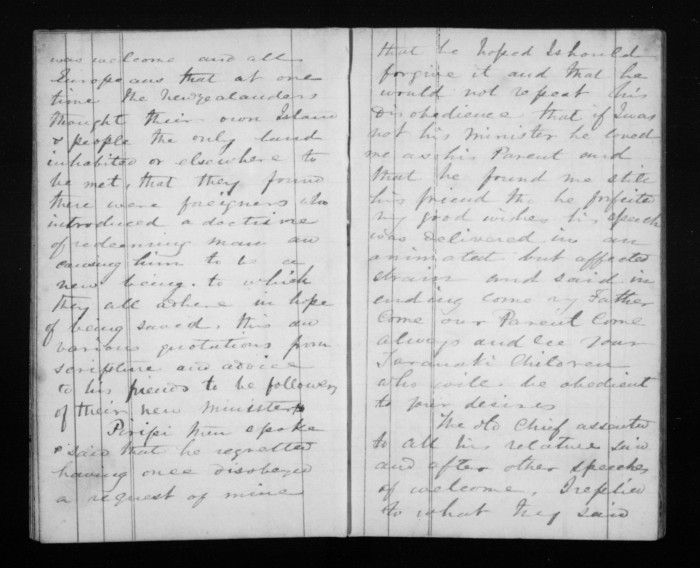 was welcome and all
Europeans that at one
time the Newzealanders
thought their own Island
& people the only land
inhabited or elsewhere to
be met, that they found
there were foreigners who
introduced a doctrine
of redeeming man an
causing him to be a
new being. to which
they all adhere in hope
of being saved, this an
various quotations from
scripture and advice
to his friends to be followers
of their new minister
Piripi then spoke
& said that he regretted
having once disobeyed
a request of mine
that he hoped I should
forgive it and that he
would not repeat his
disobedience that if I was
not his minister he loved
me as his Parent and
that he found me still
his friend tho he forfeited
my good wishes his speech
was delivered in an
animated but affected
strain and said in
ending come my Father
come our Parent come
always and see your
Taranaki Children
who will be obedient
to your desires
The old Chief assented
to all his relative said
and after other speeches
of welcome, I replied
to what they said